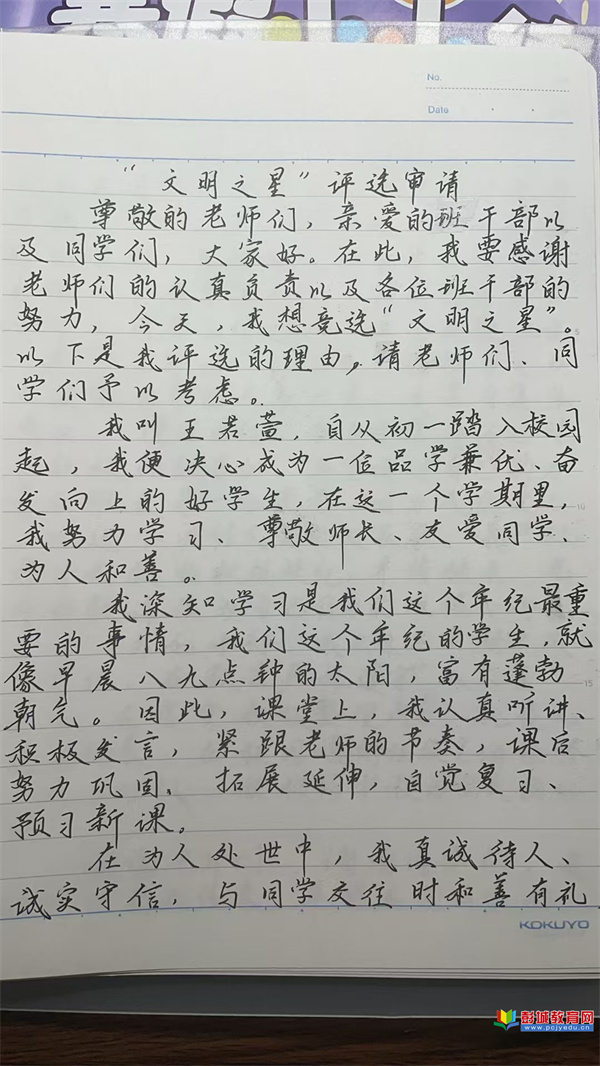 No.
Date
“文明之星”评选申请
尊敬的老师们，亲爱的班干部以
及同学们，大家好。在此，我要感谢
老师们的认真负责以及各位班干部的
努力，今天，我想竞选“文明之星”。
以下是我评选的理由，请老师们、同
学们予以考虑。
我叫王若萱，自从初一踏入校园
起，我便决心成为一位品学兼优、奋
发向上的好学生，在这一个学期里，
我努力学习、尊敬师长、友爱同学、
为人和善。
我深知学习是我们这个年纪最重
要的事情，我们这个年纪的学生，就
像早晨八九点钟的太阳，富有蓬勃
朝气。因此，课堂上，我认真听讲、
积极发言，紧跟老师的节奏，课后
努力巩固、拓展延伸，自觉复习、
预习新课。
在为人处世中，我真诚待人、
诚实守信，与同学交往时和善有礼
KOKUYO
彭城教育网
www.pcjyedu.cn